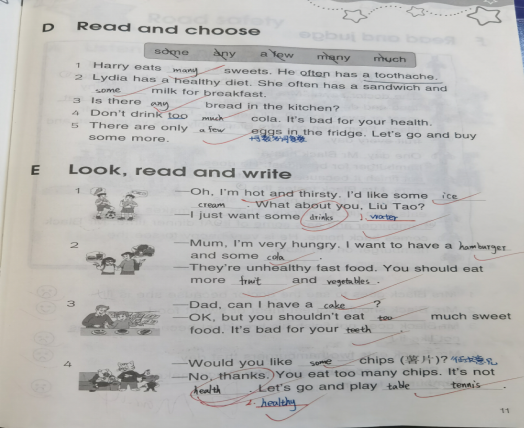 D Read and choose
some any a few many much
1 Harry eats many sweets. He often has a toothache.
2 Lydia has a healthy diet. She often has a sandwich and
some milk for breakfast.
3 Is there any bread in the kitchen?
4 Don't drink too much cola. It's bad for your health.
5 There are only a few eggs in the fridge. Let's go and buy
some more.
E Look, read and write
1 —Oh, I'm hot and thirsty. I'd like some ice
cream. What about you, Liu Tao?
—I just want some drinks 1. water
2 —Mum, I'm very hungry. I want to have a hamburger
and some cola.
—They're unhealthy fast food. You should eat
more fruit and vegetables.
3 —Dad, can I have a cake?
—OK, but you shouldn't eat too much sweet
food. It's bad for your teeth.
4 —Would you like some chips (薯片)?
—No, thanks. You eat too many chips. It's not
health. Let's go and play table tennis.
2. healthy
11